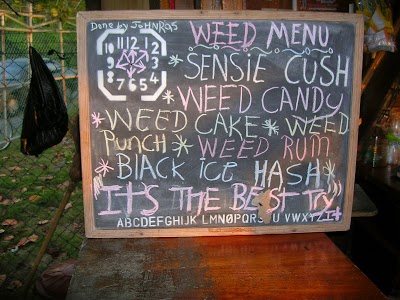 Done by JOHNRAS
WEED MENU
11 12 12
10 3
9 3
8 7 6 5 4
*SENSiE CUSH
*WEED CANDY
*WEED CAKE *WEED
PUNCH *WEED RUM
*BLACK ICE HASH*
"ITS THE BEST Try"
ABCDEFGHIJK LMNØPQRST U VWXYZ14